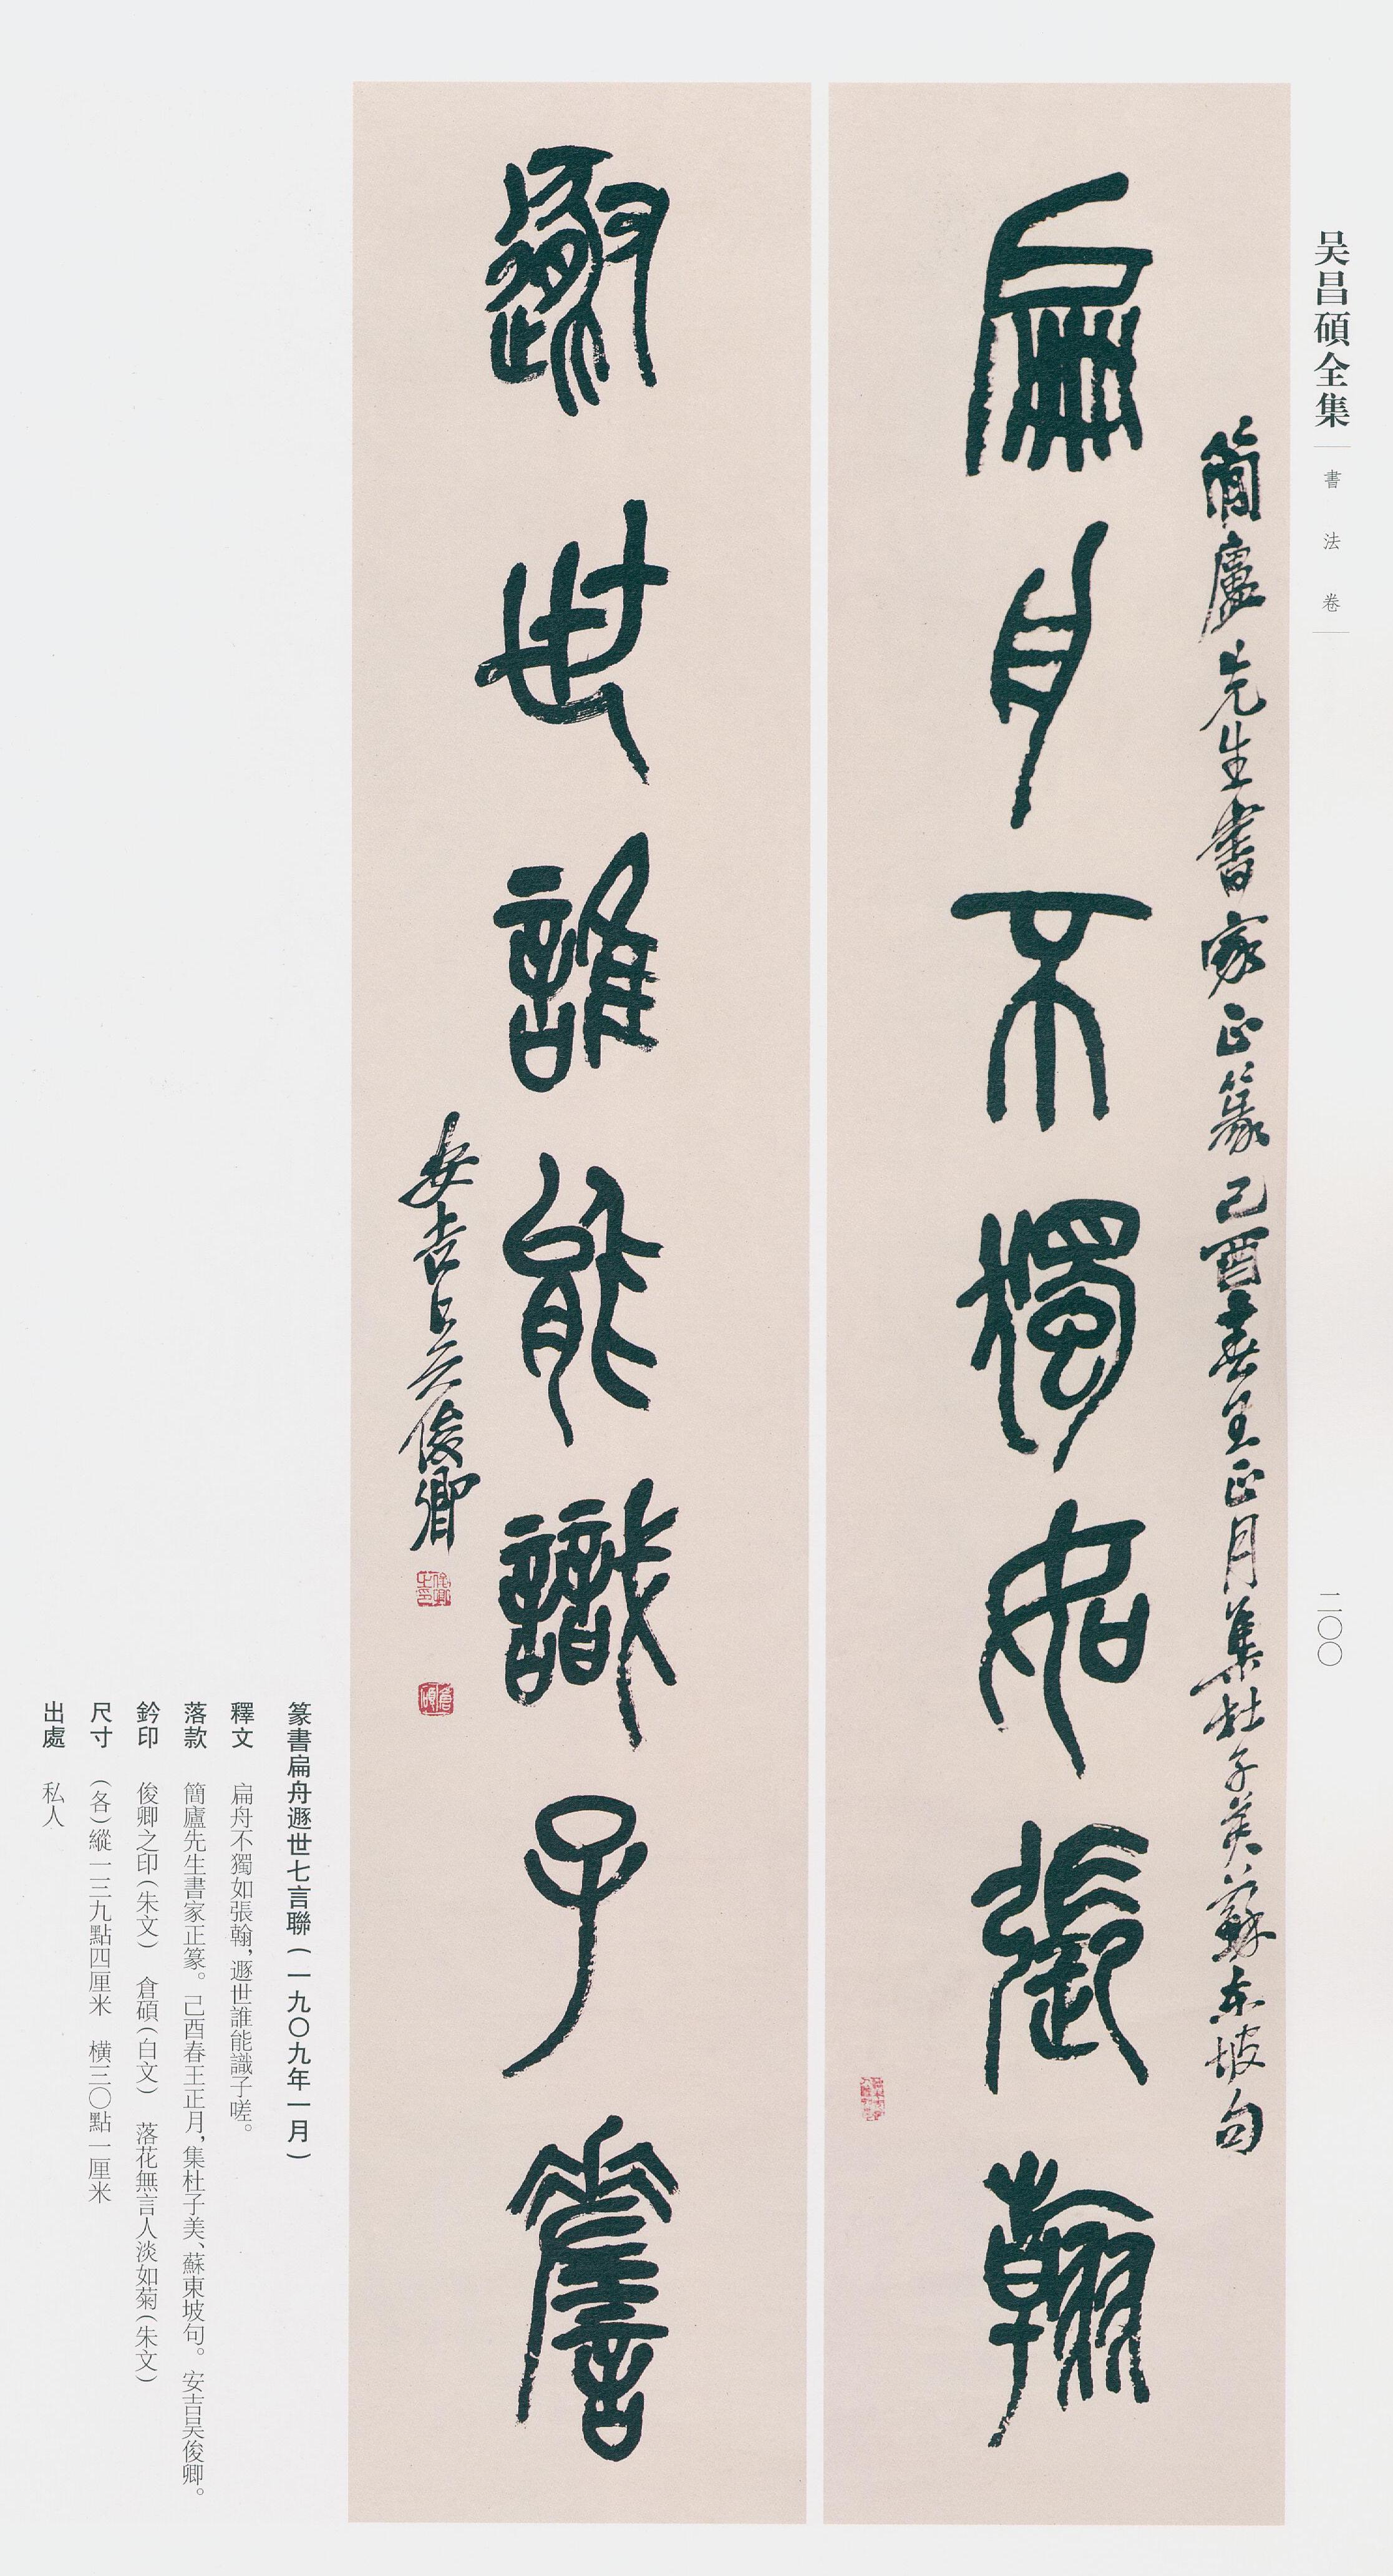 吴昌碩全集
書法卷
二〇〇
簡廬先生書家正篆己酉春王正月集杜子美蘇東坡句
扁舟不獨如張翰
落花無言人淡如菊
遯世誰能識子嗟
安吉吳俊卿
俊卿之印
倉碩
篆書扁舟遯世七言聯(一九〇九年一月)
釋文 扁舟不獨如張翰,遯世誰能識子嗟。
落款 簡廬先生書家正篆。己酉春王正月,集杜子美、蘇東坡句。安吉吴俊卿。
鈐印 俊卿之印(朱文) 倉碩(白文) 落花無言人淡如菊(朱文)
尺寸 (各)縱一三九點四厘米 横三〇點一厘米
出處 私人